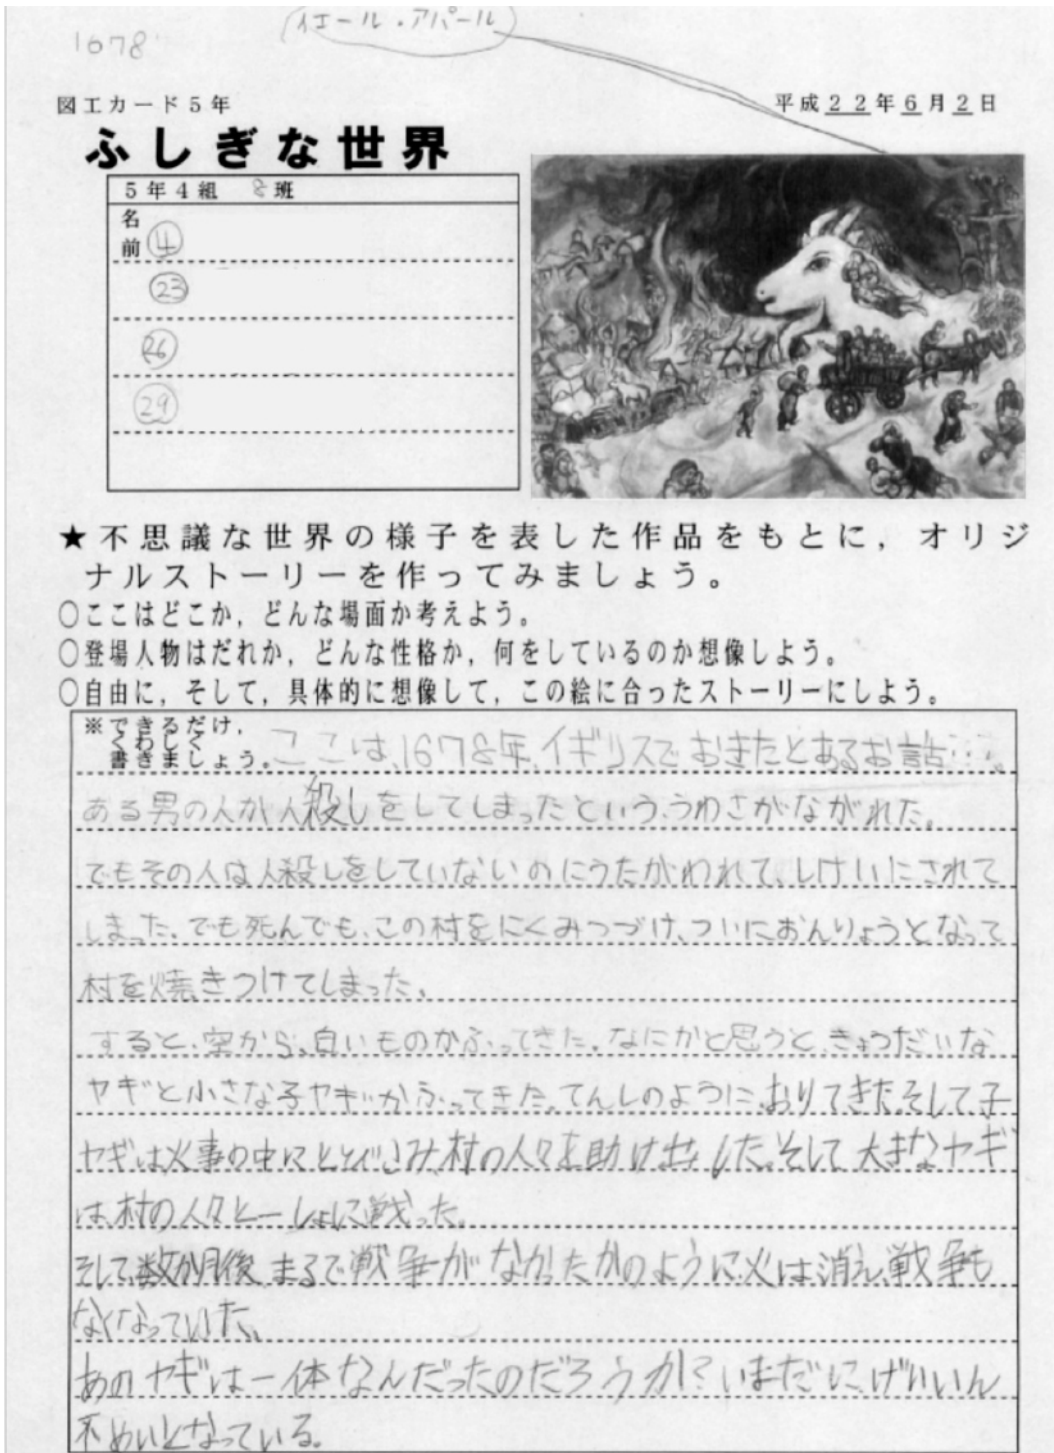 1678
イエール・アパール
図工カード5年
平成22年6月2日
ふしぎな世界
5年4組 8班
名前 ④
㉓
㉖
㉙
★不思議な世界の様子を表した作品をもとに，オリジ
ナルストーリーを作ってみましょう。
○ここはどこか，どんな場面か考えよう。
○登場人物はだれか，どんな性格か，何をしているのか想像しよう。
○自由に，そして，具体的に想像して，この絵に合ったストーリーにしよう。
※できるだけ，くわしく書きましょう。ここは、1678年、イギリスでおきたとあるお話…。
ある男の人が人殺しをしてしまったという、うわさがながれた。
でもその人は人殺しをしていないのにうたがわれて、しけいにされて
しまった。でも死んでも、この村をにくみつづけ、ついにおんりょうとなって
村を焼きつけてしまった。
すると、空から、白いものがふってきた。なにかと思うと、きょうだいな
ヤギと小さな子ヤギがふってきた。てんしのように、おりてきた。そして子
ヤギは火事の中にとびこみ、村の人々を助け出した。そして大きなヤギ
は、村の人々と一しょに戦った。
そして、数か月後、まるで戦争がなかったかのように火は消え、戦争も
なくなっていた。
あのヤギは一体なんだったのだろうか？いまだに、げんいん
不めいとなっている。